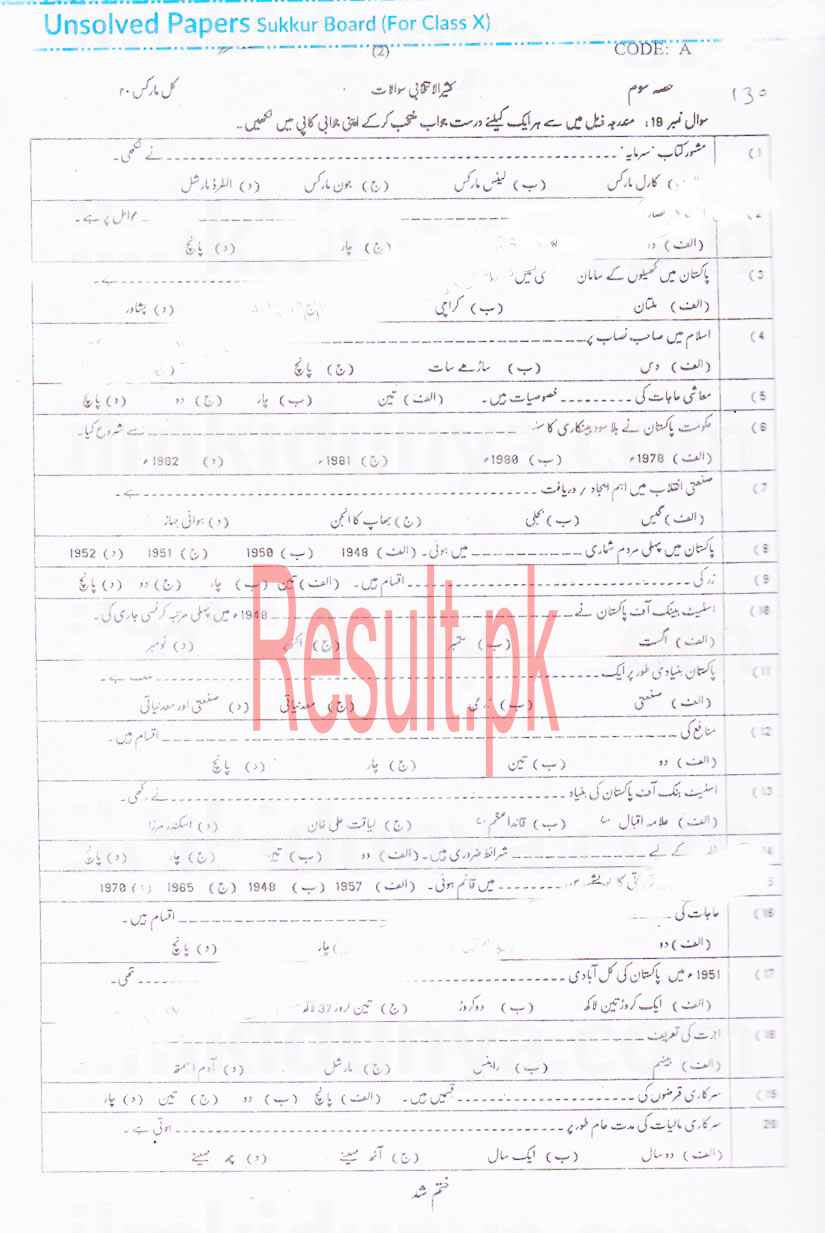 Unsolved Papers Sukkur Board (For Class X)
(2) CODE: A
حصہ سوم کثیر الانتخابی سوالات کل مارکس ۲۰
سوال نمبر 19: مندرجہ ذیل میں سے ہر ایک کیلئے درست جواب منتخب کرکے اپنی جوابی کاپی میں لکھیں۔
(1 مشہور کتاب "سرمایہ" ---------- نے لکھی۔
کارل مارکس (ب) لینس مارکس (ج) جون مارکس (د) الفرڈ مارشل
---------- عوامل پر ہے۔
(الف) دو (ج) چار (د) پانچ
(3 پاکستان میں کھیلوں کے سامان ---------- ہے۔
(الف) ملتان (ب) کراچی (د) پشاور
(4 اسلام میں صاحب نصاب پر ----------
(الف) دس (ب) ساڑھے سات (ج) پانچ
(5 معاشی حاجات کی ---------- خصوصیات ہیں۔ (الف) تین (ب) چار (ج) دو (د) پانچ
(6 حکومت پاکستان نے بلا سود بینکاری کا سنہ ---------- سے شروع کیا۔
(الف) 1978ء (ب) 1980ء (ج) 1981ء (د) 1982ء
(7 صنعتی انقلاب میں اہم ایجاد / دریافت ---------- ہے۔
(الف) گیس (ب) بجلی (ج) بھاپ کا انجن (د) ہوائی جہاز
(8 پاکستان میں پہلی مردم شماری ---------- میں ہوئی۔ (الف) 1948 (ب) 1950 (ج) 1951 (د) 1952
(9 زر کی ---------- اقسام ہیں۔ (الف) تین (ب) چار (ج) دو (د) پانچ
(10 اسٹیٹ بینک آف پاکستان نے ---------- 1948ء میں پہلی مرتبہ کرنسی جاری کی۔
(الف) اگست (ب) ستمبر (ج) اکتوبر (د) نومبر
(11 پاکستان بنیادی طور پر ایک ---------- ملک ہے۔
(الف) صنعتی (ب) زرعی (ج) معدنیاتی (د) صنعتی اور معدنیاتی
(12 منافع کی ---------- اقسام ہیں۔
(الف) دو (ب) تین (ج) چار (د) پانچ
(13 اسٹیٹ بنک آف پاکستان کی بنیاد ---------- نے رکھی۔
(الف) علامہ اقبال (ب) قائداعظم (ج) لیاقت علی خان (د) اسکندر مرزا
14 کے لیے ---------- شرائط ضروری ہیں۔ (الف) دو (ب) تین (ج) چار (د) پانچ
---------- میں قائم ہوئی۔ (الف) 1957 (ب) 1948 (ج) 1965 (د) 1970
(16 حاجات کی ---------- اقسام ہیں۔
(الف) دو چار (د) پانچ
(17 1951ء میں پاکستان کی کل آبادی ---------- تھی۔
(الف) ایک کروڑ تین لاکھ (ب) دو کروڑ (ج) تین کروڑ 37 لاکھ
(18 اجرت کی تعریف ----------
(الف) بینہم (ب) رابنس (ج) مارشل (د) آدم اسمتھ
(19 سرکاری قرضوں کی ---------- قسمیں ہیں۔ (الف) پانچ (ب) دو (ج) تین (د) چار
20 سرکاری مالیات کی مدت عام طور پر ---------- ہوتی ہے۔
(الف) دو سال (ب) ایک سال (ج) آٹھ مہینے (د) چھ مہینے
ختم شد
Result.pk